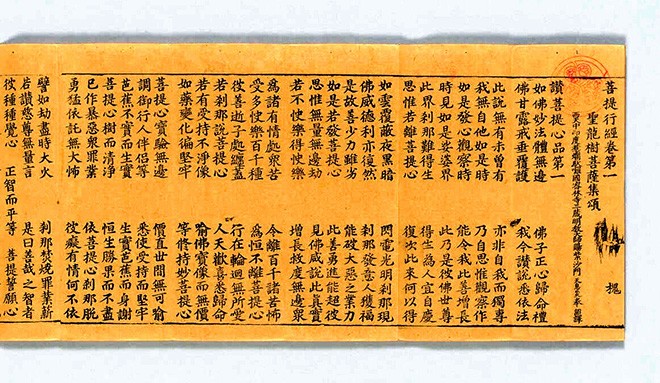 菩提行經卷第一 槐
聖龍樹菩薩集頌
讚菩提心品第一
如佛妙法體無邊 佛子正心歸命禮
佛甘露戒垂覆護 我今讚說悉依法
此說無有未曾有 亦非自我而獨專
我無自他如是時 乃自思惟觀察作
如是發心觀察時 能令我此善增長
時見如是娑婆界 此乃是彼佛世尊
此界剎那難得生 得生為人宜自慶
思惟若離菩提心 復次此來何以得
如雲覆蔽夜黑暗 閃電光明剎那現
佛威德利亦復然 剎那發意人獲福
是故善少力雖劣 能破大惡之業力
如是若發菩提心 此善勇進能超彼
思惟無量無邊劫 見佛咸說此真實
若不快樂得快樂 增長救度無邊眾
為諸有情處眾苦 令離百千諸苦怖
受多快樂百千種 為恒不離菩提心
彼善逝子處纏蓋 行在輪迴無所愛
若剎那說菩提心 人天歡喜悉歸命
若有受持不淨像 喻佛寶像而無價
如藥變化遍堅牢 等修持妙菩提心
菩提心寶驗無邊 價直世間無可喻
調御行人伴侶等 悉使受持而堅牢
芭蕉不實而生實 生實芭蕉而身謝
菩提心樹而清淨 恒生勝果而不盡
已作暴惡眾罪業 依菩提心剎那脫
勇猛依託無大怖 彼癡有情何不依
譬如劫盡時大火 剎那焚燒罪業薪
若讚慈尊無量言 是曰善哉之智者
彼種種覺心 正智而平等 菩提誓願心